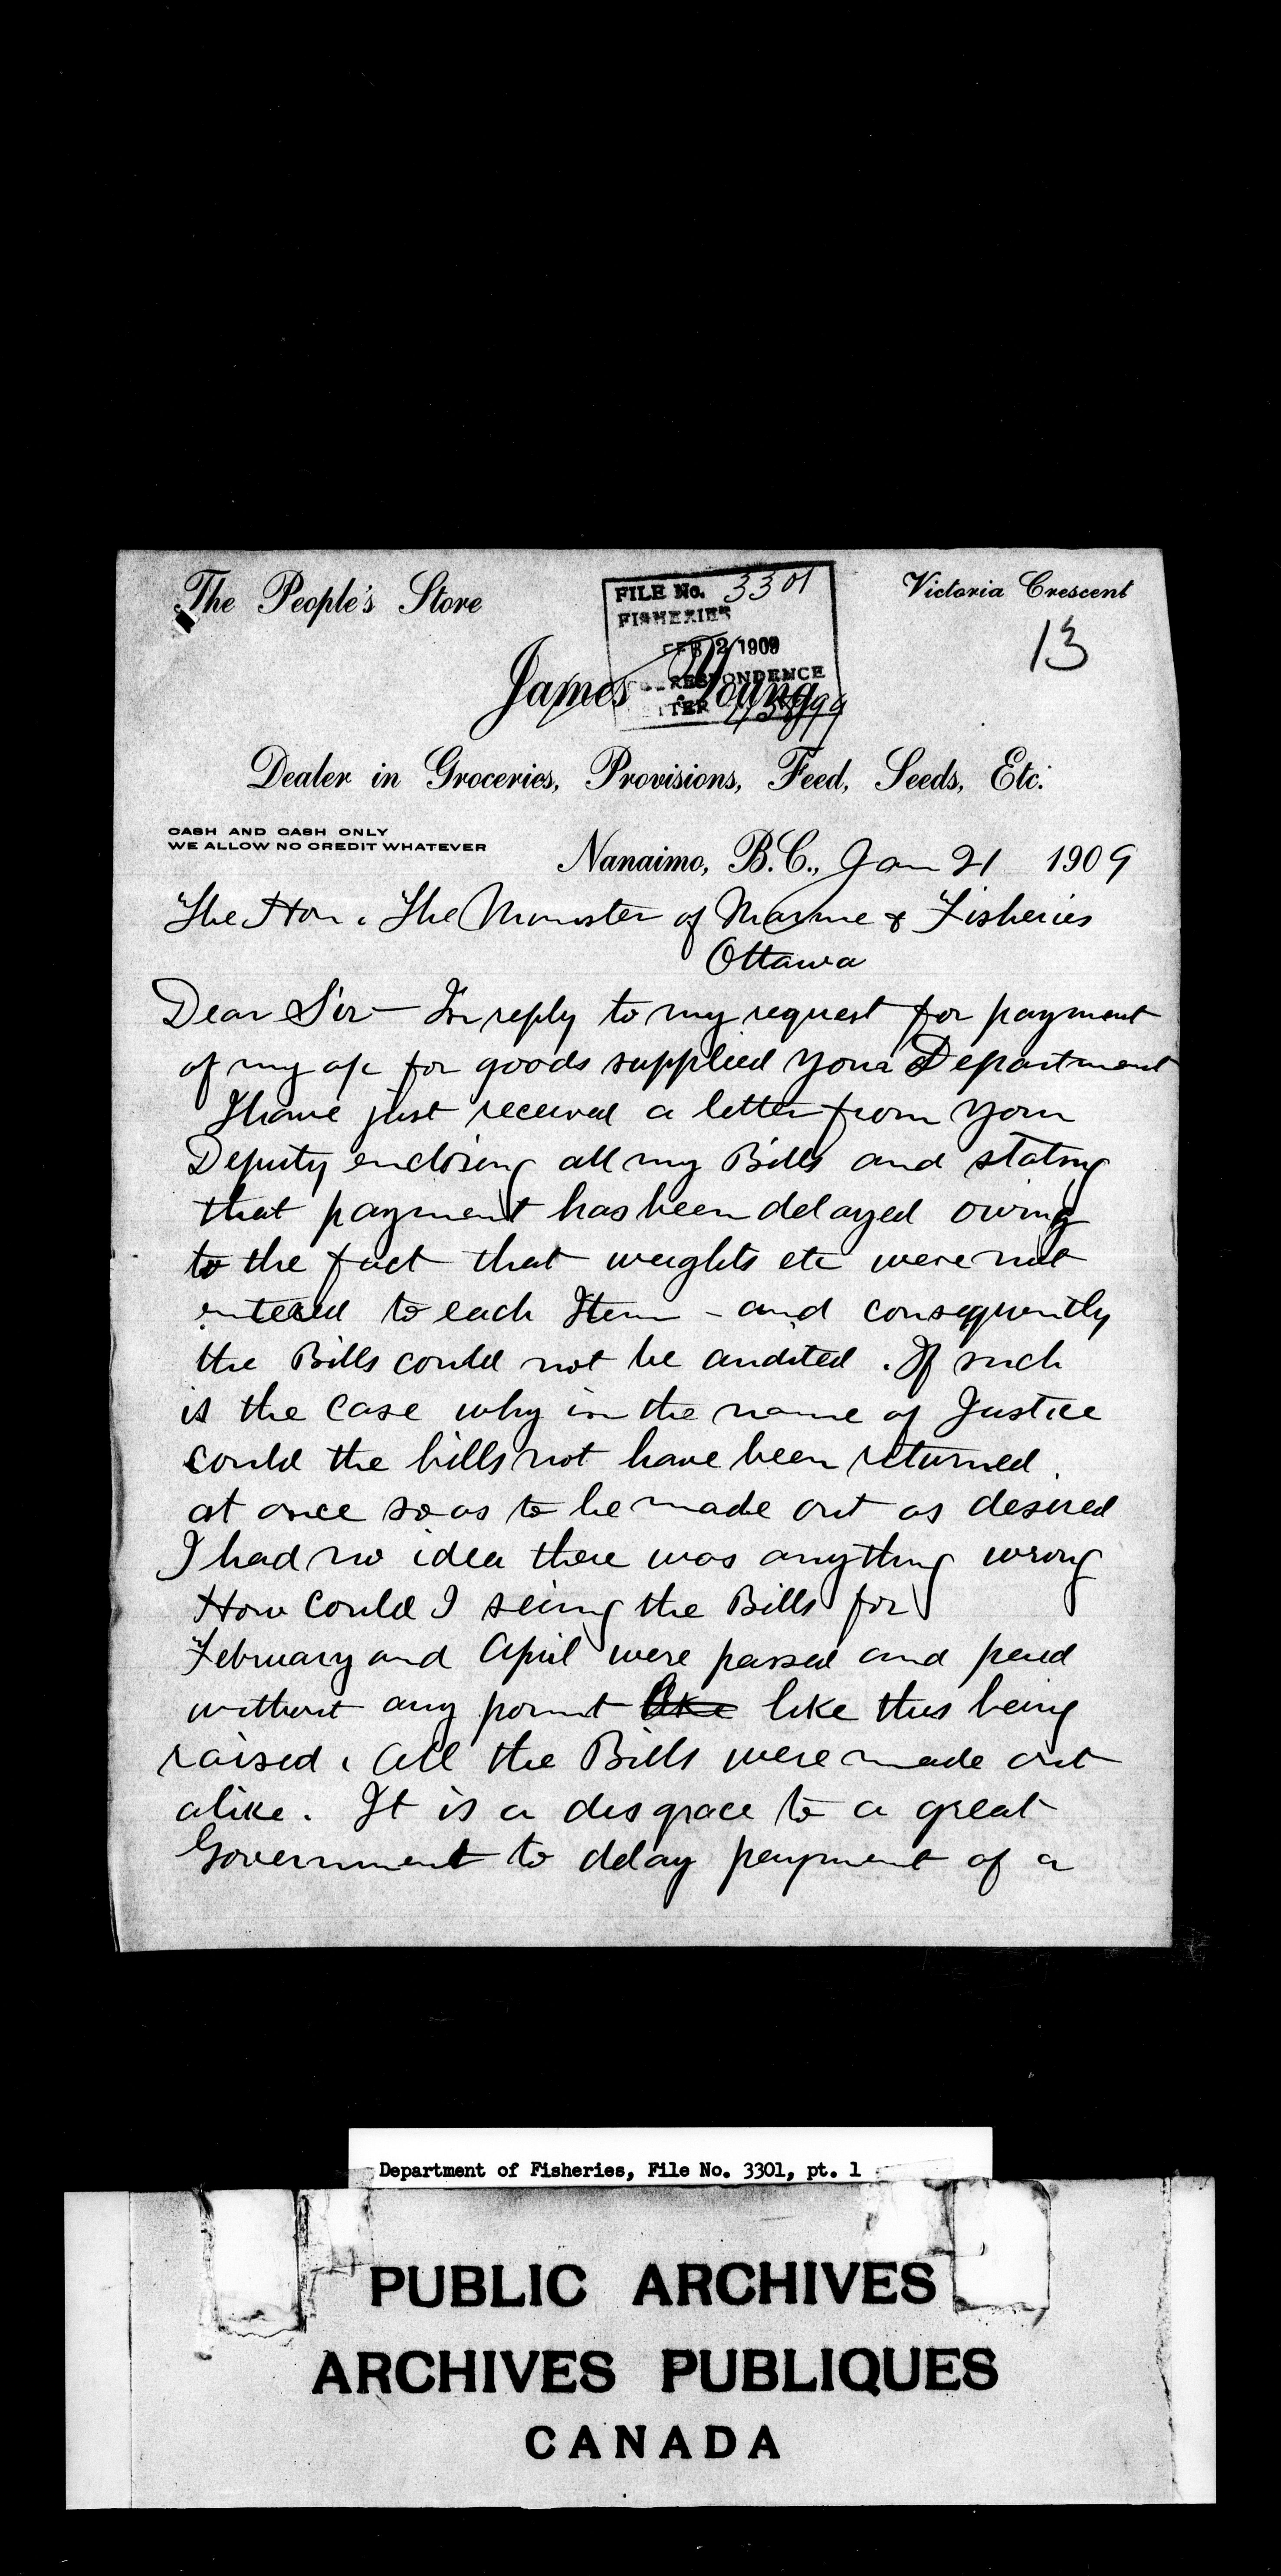 The People's Store
Victoria Crescent
FILE No. 3301
FISHERIES
FEB 2 1909
13
James Young
Dealer in Groceries, Provisions, Feed, Seeds, Etc.
CASH AND CASH ONLY
WE ALLOW NO CREDIT WHATEVER
Nanaimo, B.C., Jan 21 1909
The Hon. The Minister of Marine & Fisheries
Ottawa
Dear Sir – In reply to my request for payment
of my a/c for goods supplied your Department
I have just received a letter from your
Deputy enclosing all my Bills and stating
that payment has been delayed owing
to the fact that weights etc were not
entered to each Item – and consequently
the Bills could not be audited. If such
is the case why in the name of Justice
could the bills not have been returned
at once so as to be made out as desired
I had no idea there was anything wrong
How could I seeing the Bills for
February and April were passed and paid
without any point like like this being
raised. All the Bills were made out
alike. It is a disgrace to a great
Government to delay payment of a
Department of Fisheries, File No. 3301, pt. 1
PUBLIC ARCHIVES
ARCHIVES PUBLIQUES
CANADA